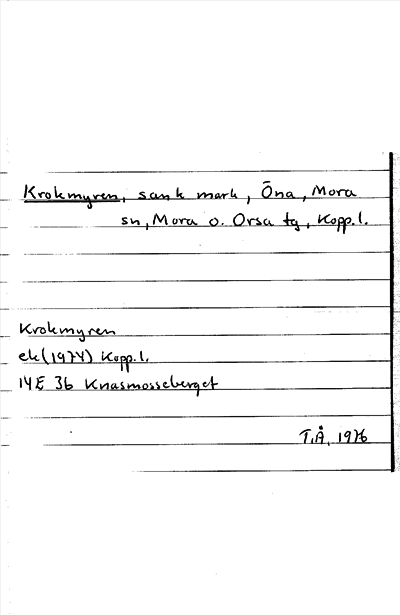 Krokmyren, sank mark, Öna, Mora
sn, Mora o. Orsa tg, Kopp. l.
Krokmyren
ek (1974) Kopp. l.
14E 3b Knasmosseberget
T.Å. 1976